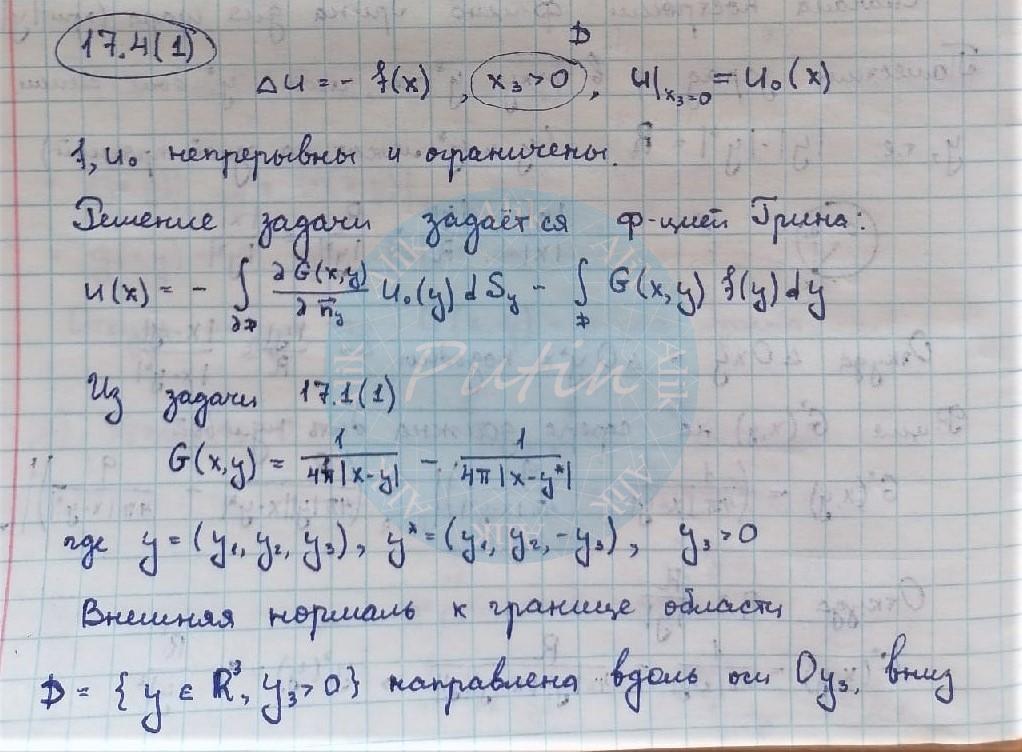 17.4(1)
D
Δu = - f(x) , x₃ > 0 , u|ₓ₃₌₀ = u₀(x)
f, u₀ непрерывны и ограничены.
Решение задачи задаётся ф-цией Грина:
u(x) = - ∫_∂D ∂G(x,y)/∂n⃗_y u₀(y) dS_y - ∫_D G(x,y) f(y) dy
Из задачи 17.1(1)
G(x,y) = 1/(4π|x-y|) - 1/(4π|x-y*|)
где y = (y₁, y₂, y₃), y* = (y₁, y₂, -y₃), y₃ > 0
Внешняя нормаль к границе области
D = { y ∈ R³, y₃ > 0 } направлена вдоль оси Oy₃, вниз
Putin
Alik